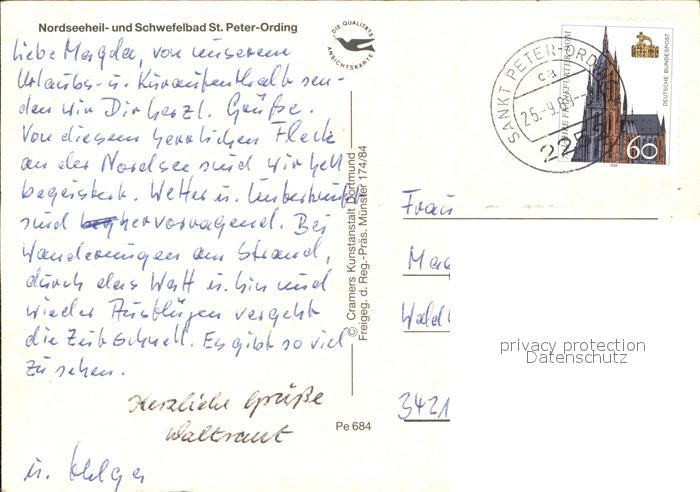 Nordseeheil- und Schwefelbad St. Peter-Ording
DIE QUALITÄTS
ANSICHTSKARTE
Liebe Magda, von unserem
Urlaubs- u. Kuraufenthalt sen-
den wir Dir herzl. Grüße.
Von diesem herrlichen Fleck
an der Nordsee sind wir hell
begeistert. Wetter u. Unterkunft
sind hervorragend. Bei
Wanderungen am Strand,
durch das Watt u. hin und
wieder Ausflügen vergeht
die Zeit schnell. Es gibt so viel
zu sehen.
Herzliche Grüße
Waltraut
u. Helga
© Cramers Kunstanstalt Dortmund
Freigeg. d. Reg.-Präs. Münster 174/84
Pe 684
SANKT PETER-ORDING
ca
25.-9.
DEUTSCHE BUNDESPOST
60
Frau
Mag
Wald
3421
privacy protection
Datenschutz